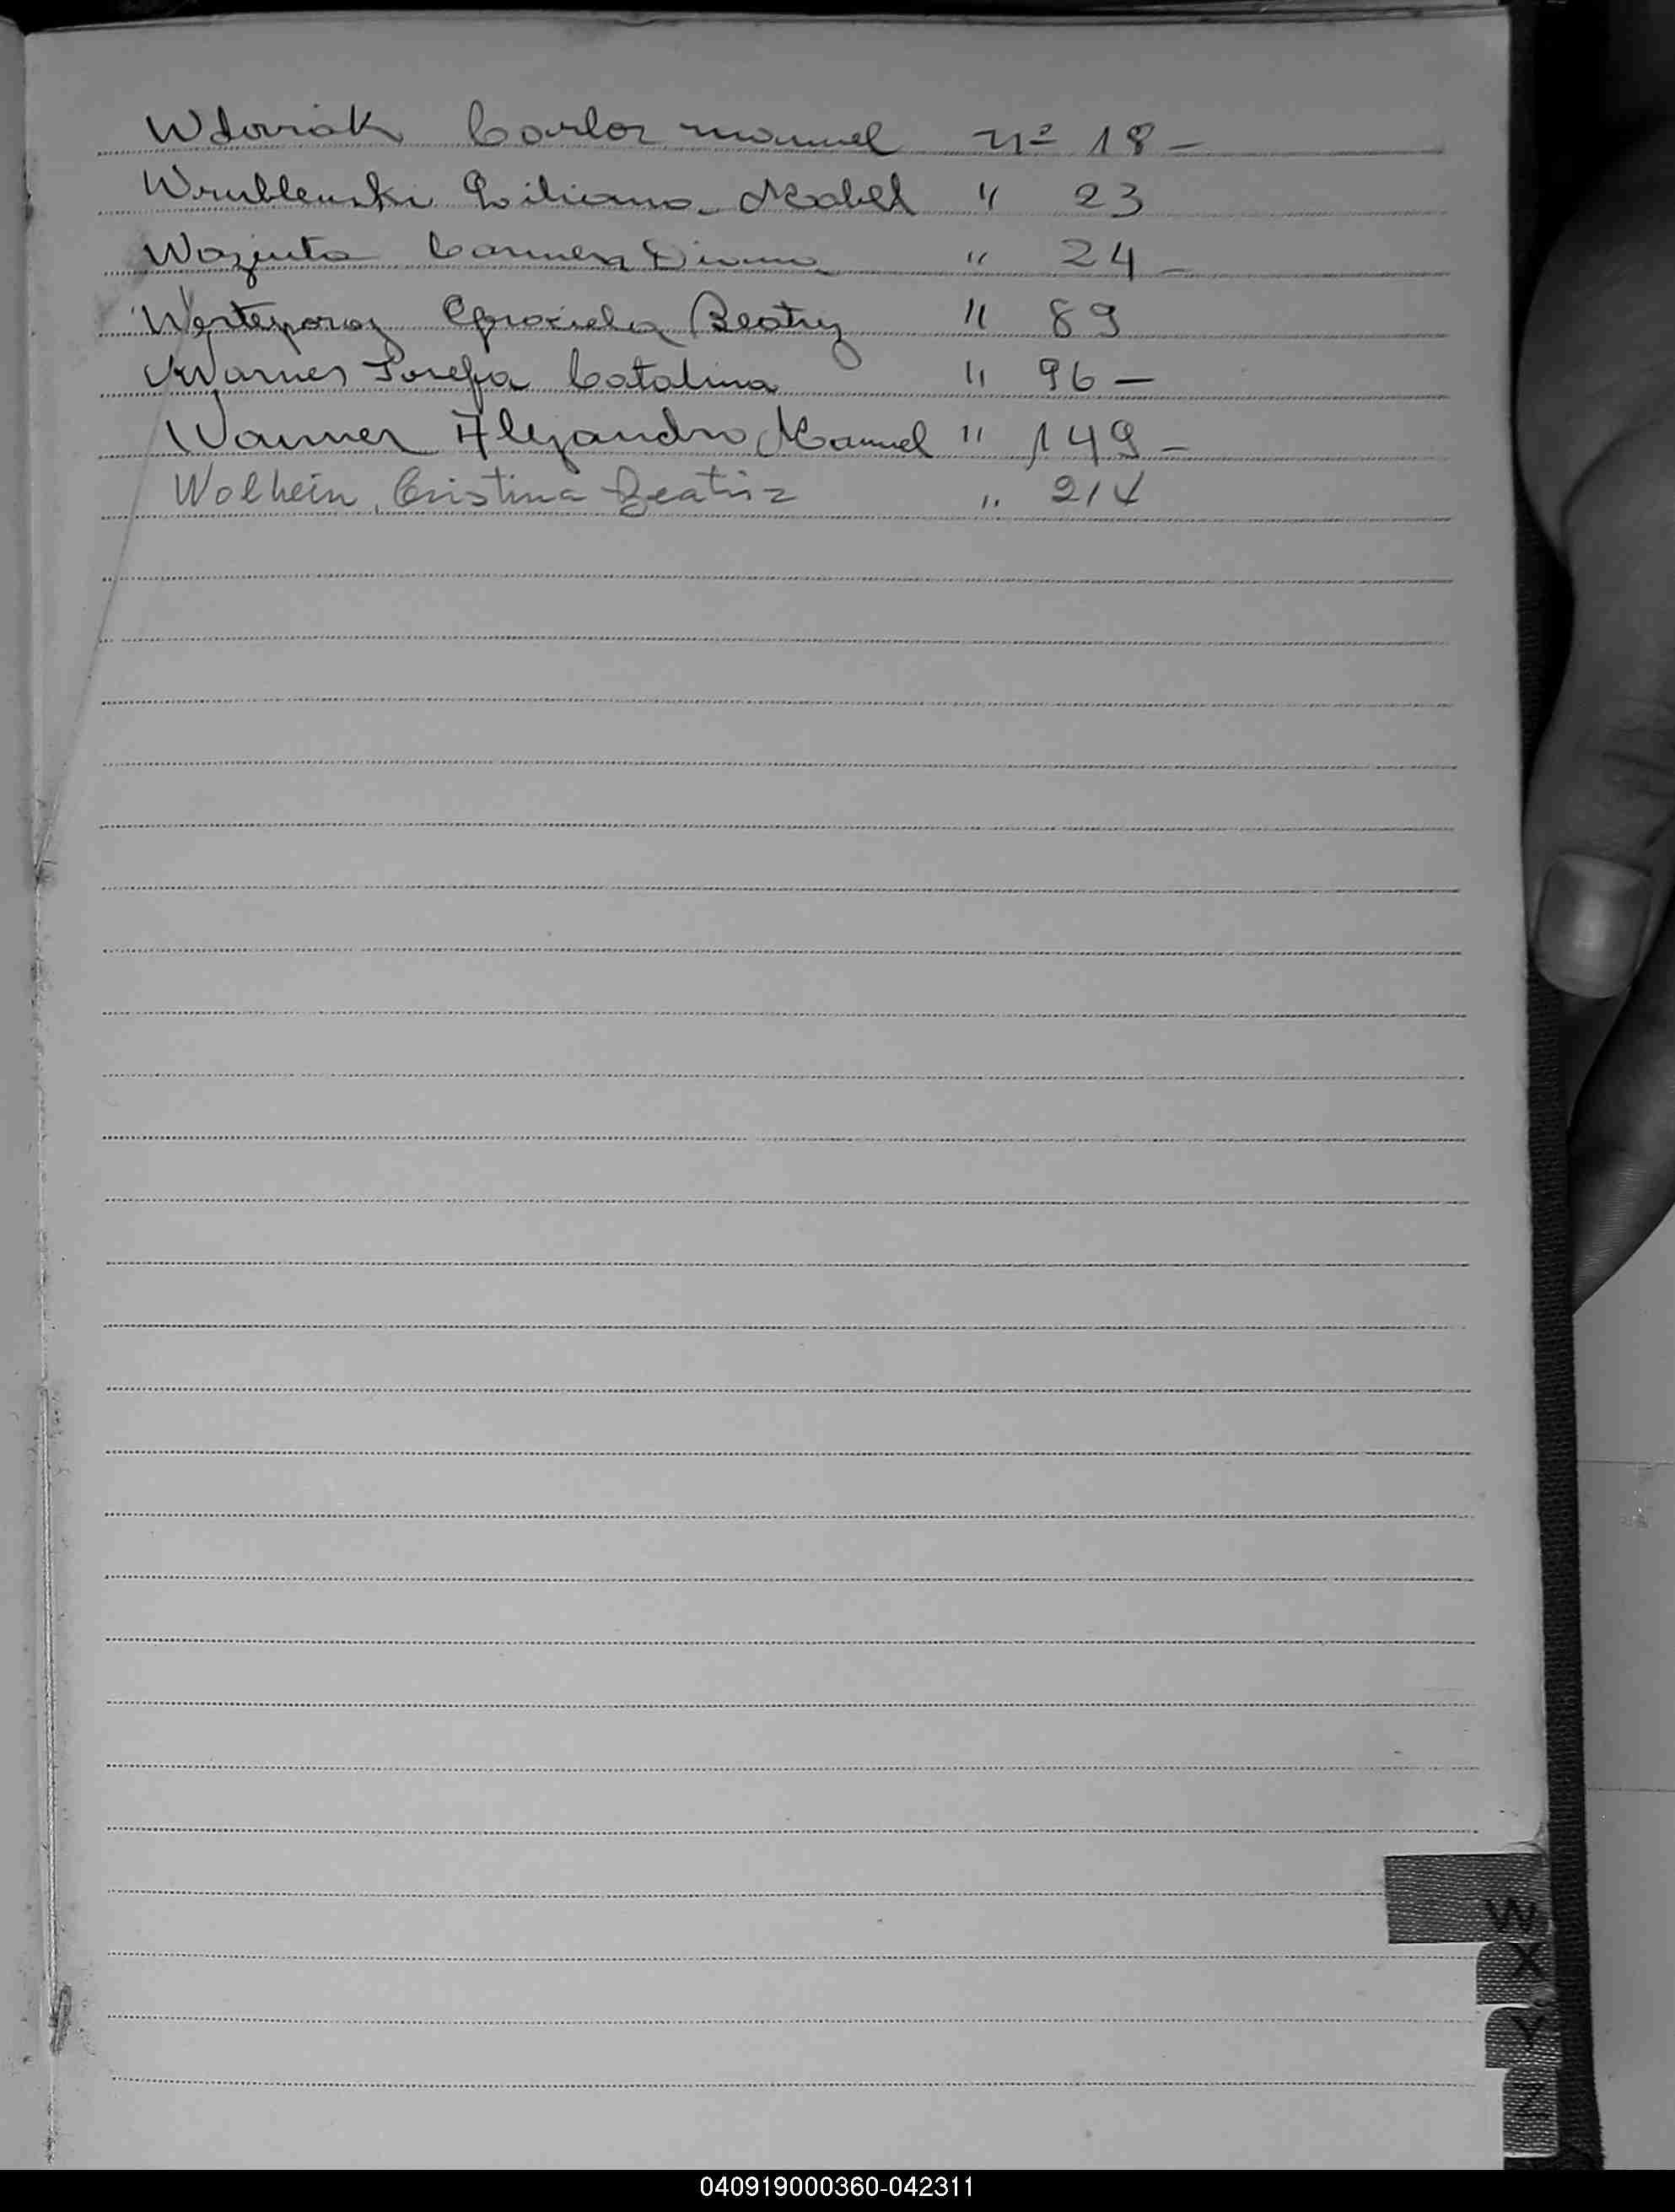 Wdoviak Carlos manuel nº 18 -
Wrublenski Liliana Mabel " 23
Carmen " 24 -
Graciela Beatriz " 89
Warnes Josefa Catalina " 96 -
Wanner Alejandro Manuel " 149 -
Wolhein, Cristina Beatriz " 214
W
X
Y
Z
040919000360-042311